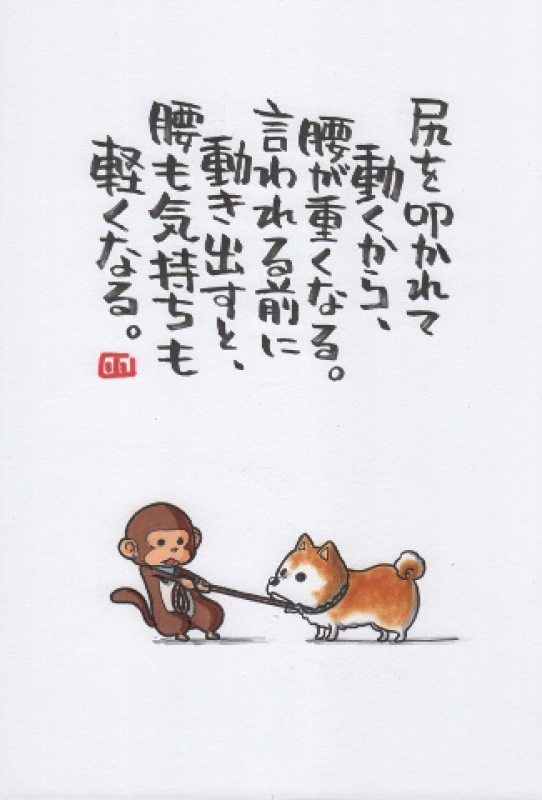 尻を叩かれて
動くから、
腰が重くなる。
言われる前に
動き出すと、
腰も気持ちも
軽くなる。